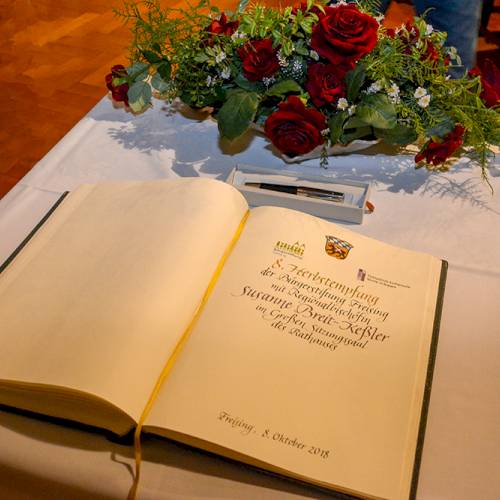 8. Herbstempfang
der Bürgerstiftung Freising
mit Regionalbischöfin
Susanne Breit-Keßler
im Großen Sitzungssaal
des Rathauses
Freising, 8. Oktober 2018